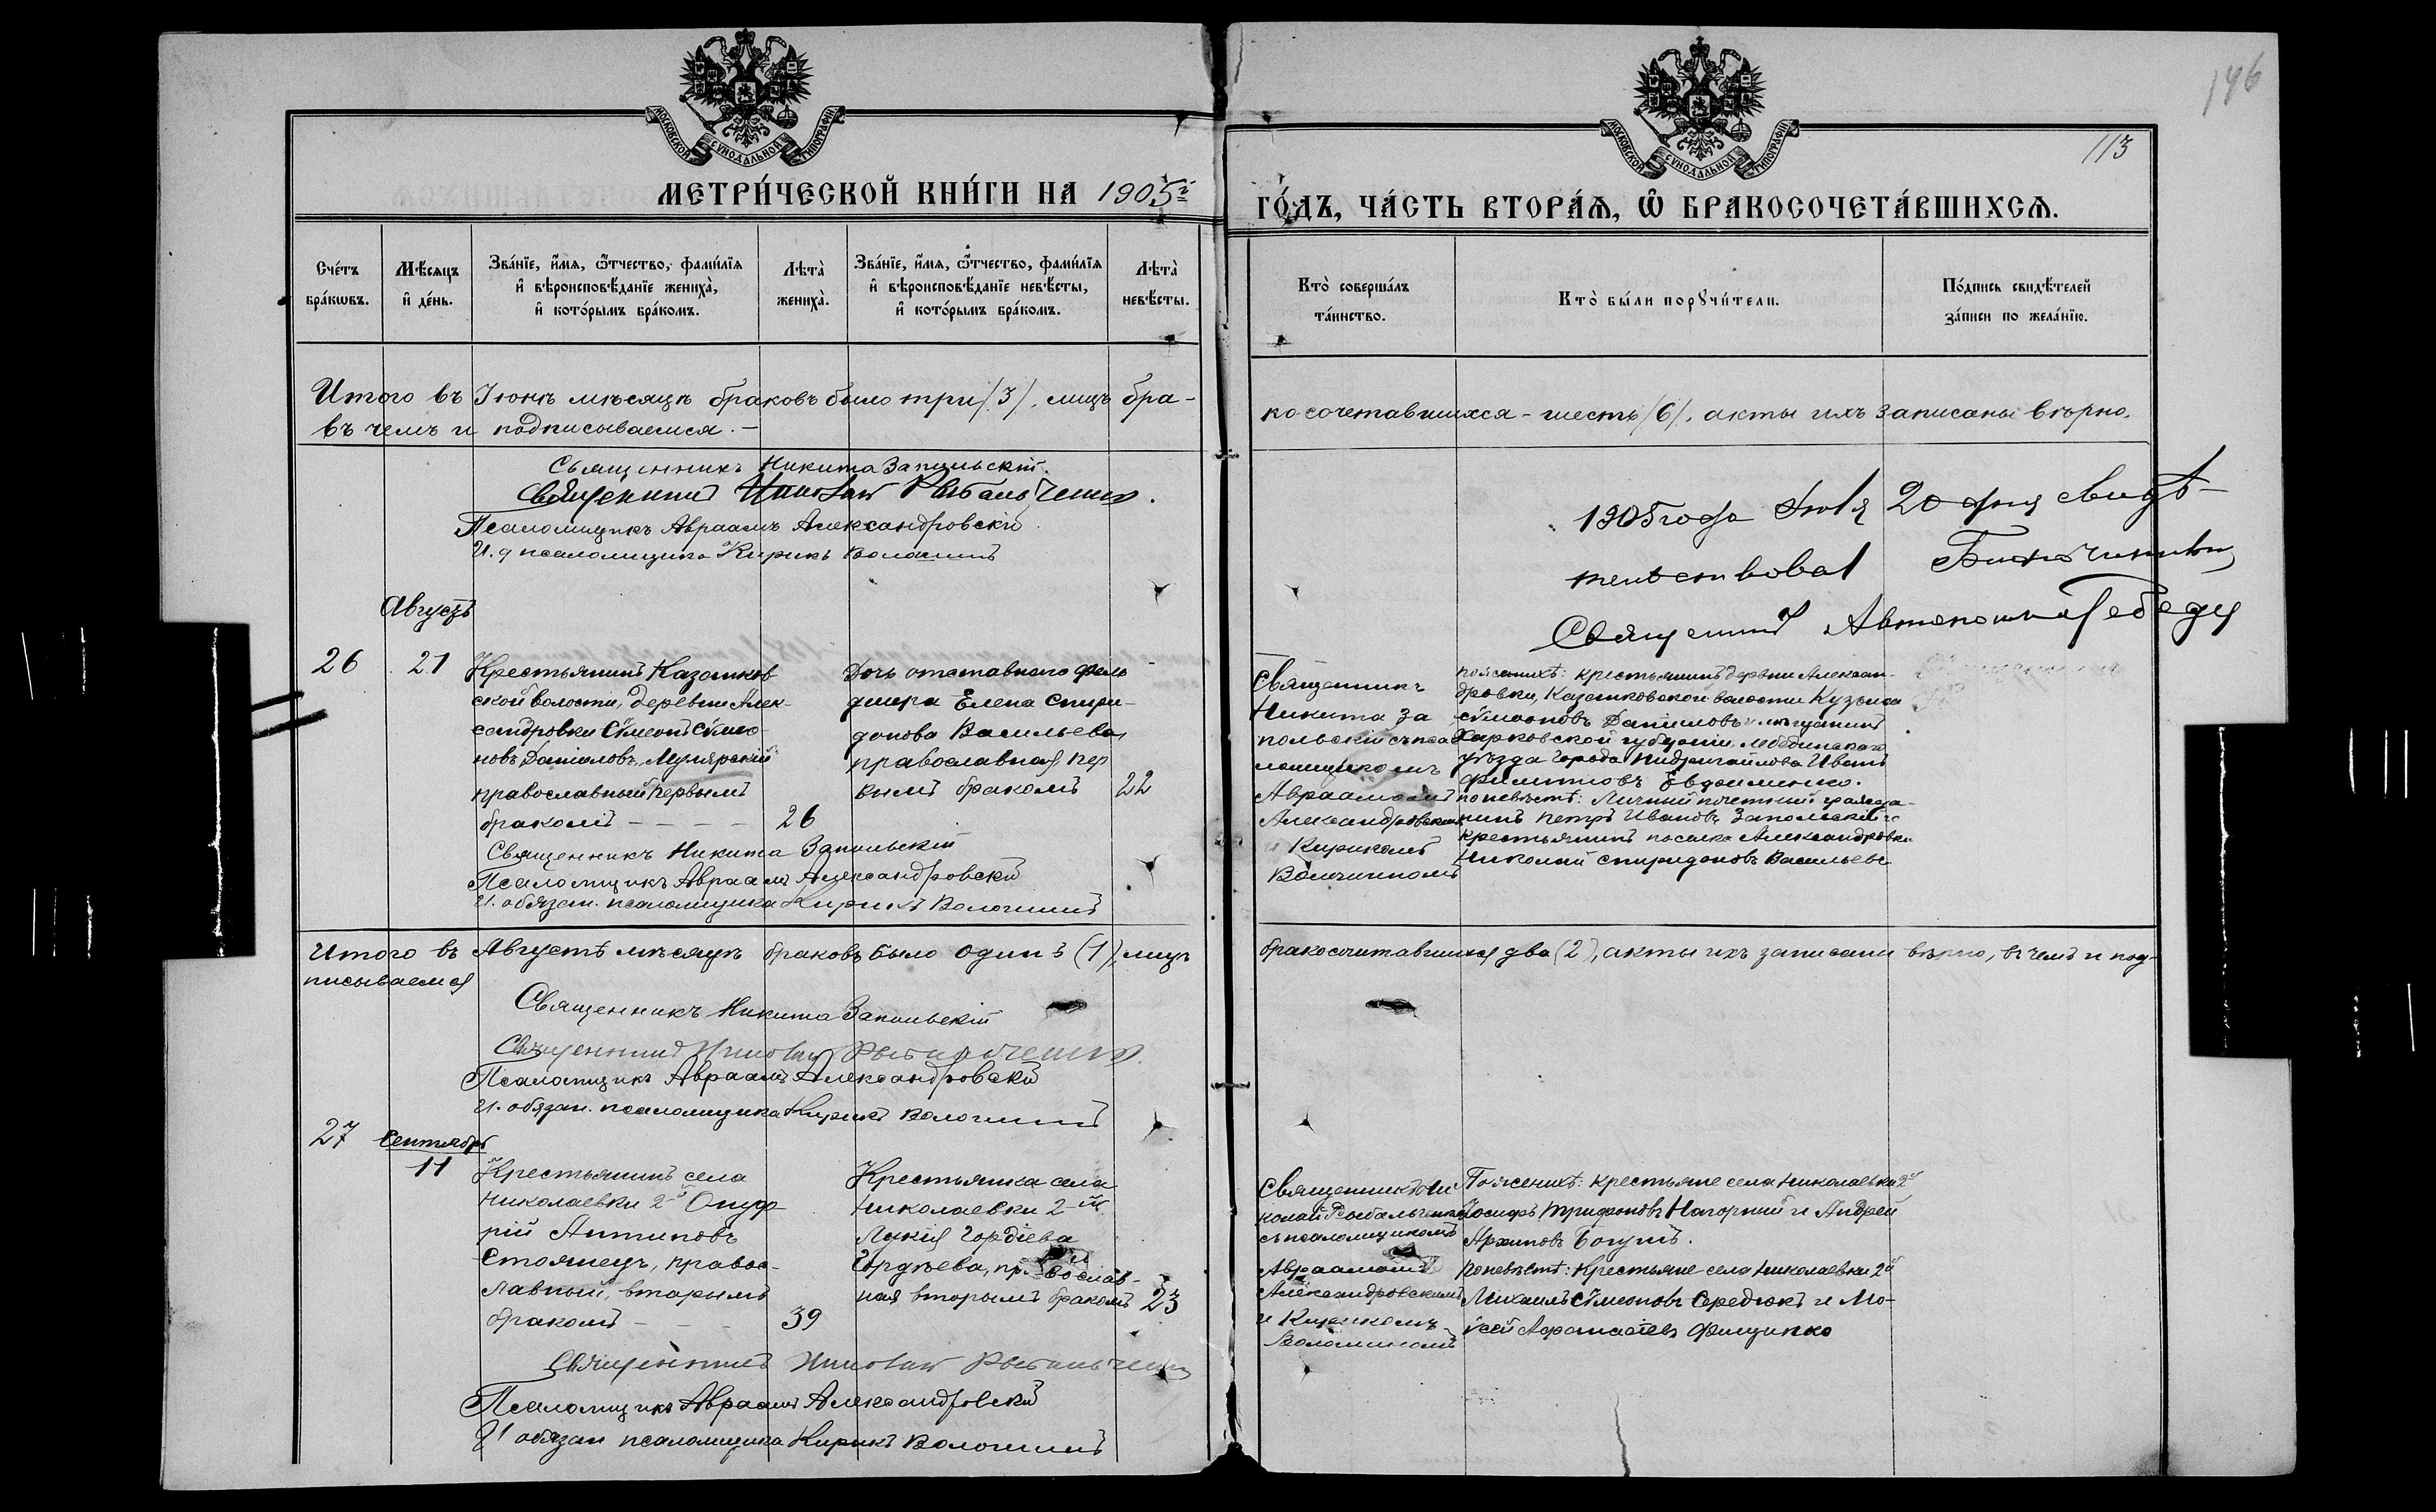 146
113
МОСКОВСКОЙ СѴНОДАЛЬНОЙ ТИПОГРАФІИ
МОСКОВСКОЙ СѴНОДАЛЬНОЙ ТИПОГРАФІИ
МЕТРИ́ЧЕСКОЙ КНИ́ГИ НА 1905й
ГО́ДЪ, ЧА́СТЬ ВТОРА́Ѧ, Ѽ БРАКОСОЧЕТА́ВШИХСѦ.
Сче́тъ бра́кѡвъ.
Мѣ́сѧцъ и҆ де́нь.
Зва́нїе, и҆́мѧ, ѻ҆́тчество, фами́лїѧ и҆ вѣроисповѣ́данїе жениха̀, и҆ кото́рымъ бра́комъ.
Лѣта̀ жениха̀.
Зва́нїе, и҆́мѧ, ѻ҆́тчество, фами́лїѧ и҆ вѣроисповѣ́данїе невѣ́сты, и҆ кото́рымъ бра́комъ.
Лѣта̀ невѣ́сты.
Кто̀ соверша́лъ та́инство.
Кто̀ бы́ли порꙋчи́тели.
По́дпись свидѣ́телей за́писи по жела́нїю.
Итого въ Іюнѣ мѣсяцѣ браковъ было три /3/, лицъ бра-
косочетавшихся - шесть /6/, акты ихъ записаны вѣрно,
въ чемъ и подписываемся. -
Священникъ Никита Запольскій.
Священникъ Николай Рыбальченко.
Псаломщикъ Авраамъ Александровскій
И. д псаломщика Кирикъ Волошинъ
1905 года Іюля 20 дня свидѣ-
тельствовал Благочинный
Священникъ
Августъ
26
21
Крестьянинъ Казанков
ской волости, деревни Алек-
сандровки Сѵмеонъ Сѵмео-
новъ Даниловъ, Мулярскій
православный первымъ
бракомъ - - - -
26
Дочь отставного фель
дшера Елена Спири-
донова Васильева,
православная пер
вымъ бракомъ
22
Священникъ
Никита За
польскій съ пса
ломщикомъ
Авраамомъ
Александровскимъ
и Кирикомъ
Волошиномъ
по женихѣ: крестьянинъ деревни Алексан-
дровки, Казанковской волости Кузьма
Сѵмеоновъ Даниловъ и мѣщанинъ
Харковской губерніи, Лебединскаго
уѣзда города Недригайлова Иванъ
Филипповъ Евдоименко.
по невѣстѣ: Личный почетный гражда-
нинъ Петръ Ивановъ Запольскій и
крестьянинъ поселка Александровки
Николай Спиридоновъ Васильевъ
Священникъ Никита Запольскій
Псаломщикъ Авраамъ Александровскій
И. обязан. псаломщика Кирикъ Волошинъ
Итого въ Августѣ мѣсяцѣ браковъ было одинъ (1), лицъ
бракосочитавшихся два (2), акты ихъ записаны вѣрно, въ чемъ и под-
писываемся
Священникъ Никита Запольскій
Священникъ Николай Рыбальченко.
Псаломщикъ Авраамъ Александровскій
И. обязан. псаломщика Кирикъ Волошинъ
27
Сентябрь
11
Крестьянинъ села
Николаевки 2-й Онуф
рій Антиповъ
Стоянецъ, правос-
лавный, вторымъ
бракомъ - - -
39
Крестьянка села
Николаевки 2-й
Лукія Гордіева
Гордѣева, православ-
ная вторымъ бракомъ
23
Священникъ Ни
колай Рыбальченко
съ псаломщикомъ
Авраамомъ
Александровскимъ
и Кирикомъ
Волошиномъ
По женихѣ: крестьяне села Николаевки 2й
Іосифъ Трифоновъ Нагорный и Андрей
Архиповъ Богунъ.
По невѣстѣ: Крестьяне села Николаевки 2й
Михаилъ Сѵмеоновъ Середюкъ и Мо-
исей Афанасіевъ Фищенко
Священникъ Николай Рыбальченко
Псаломщикъ Авраамъ Александровскій
И обязан псаломщика Кирикъ Волошинъ